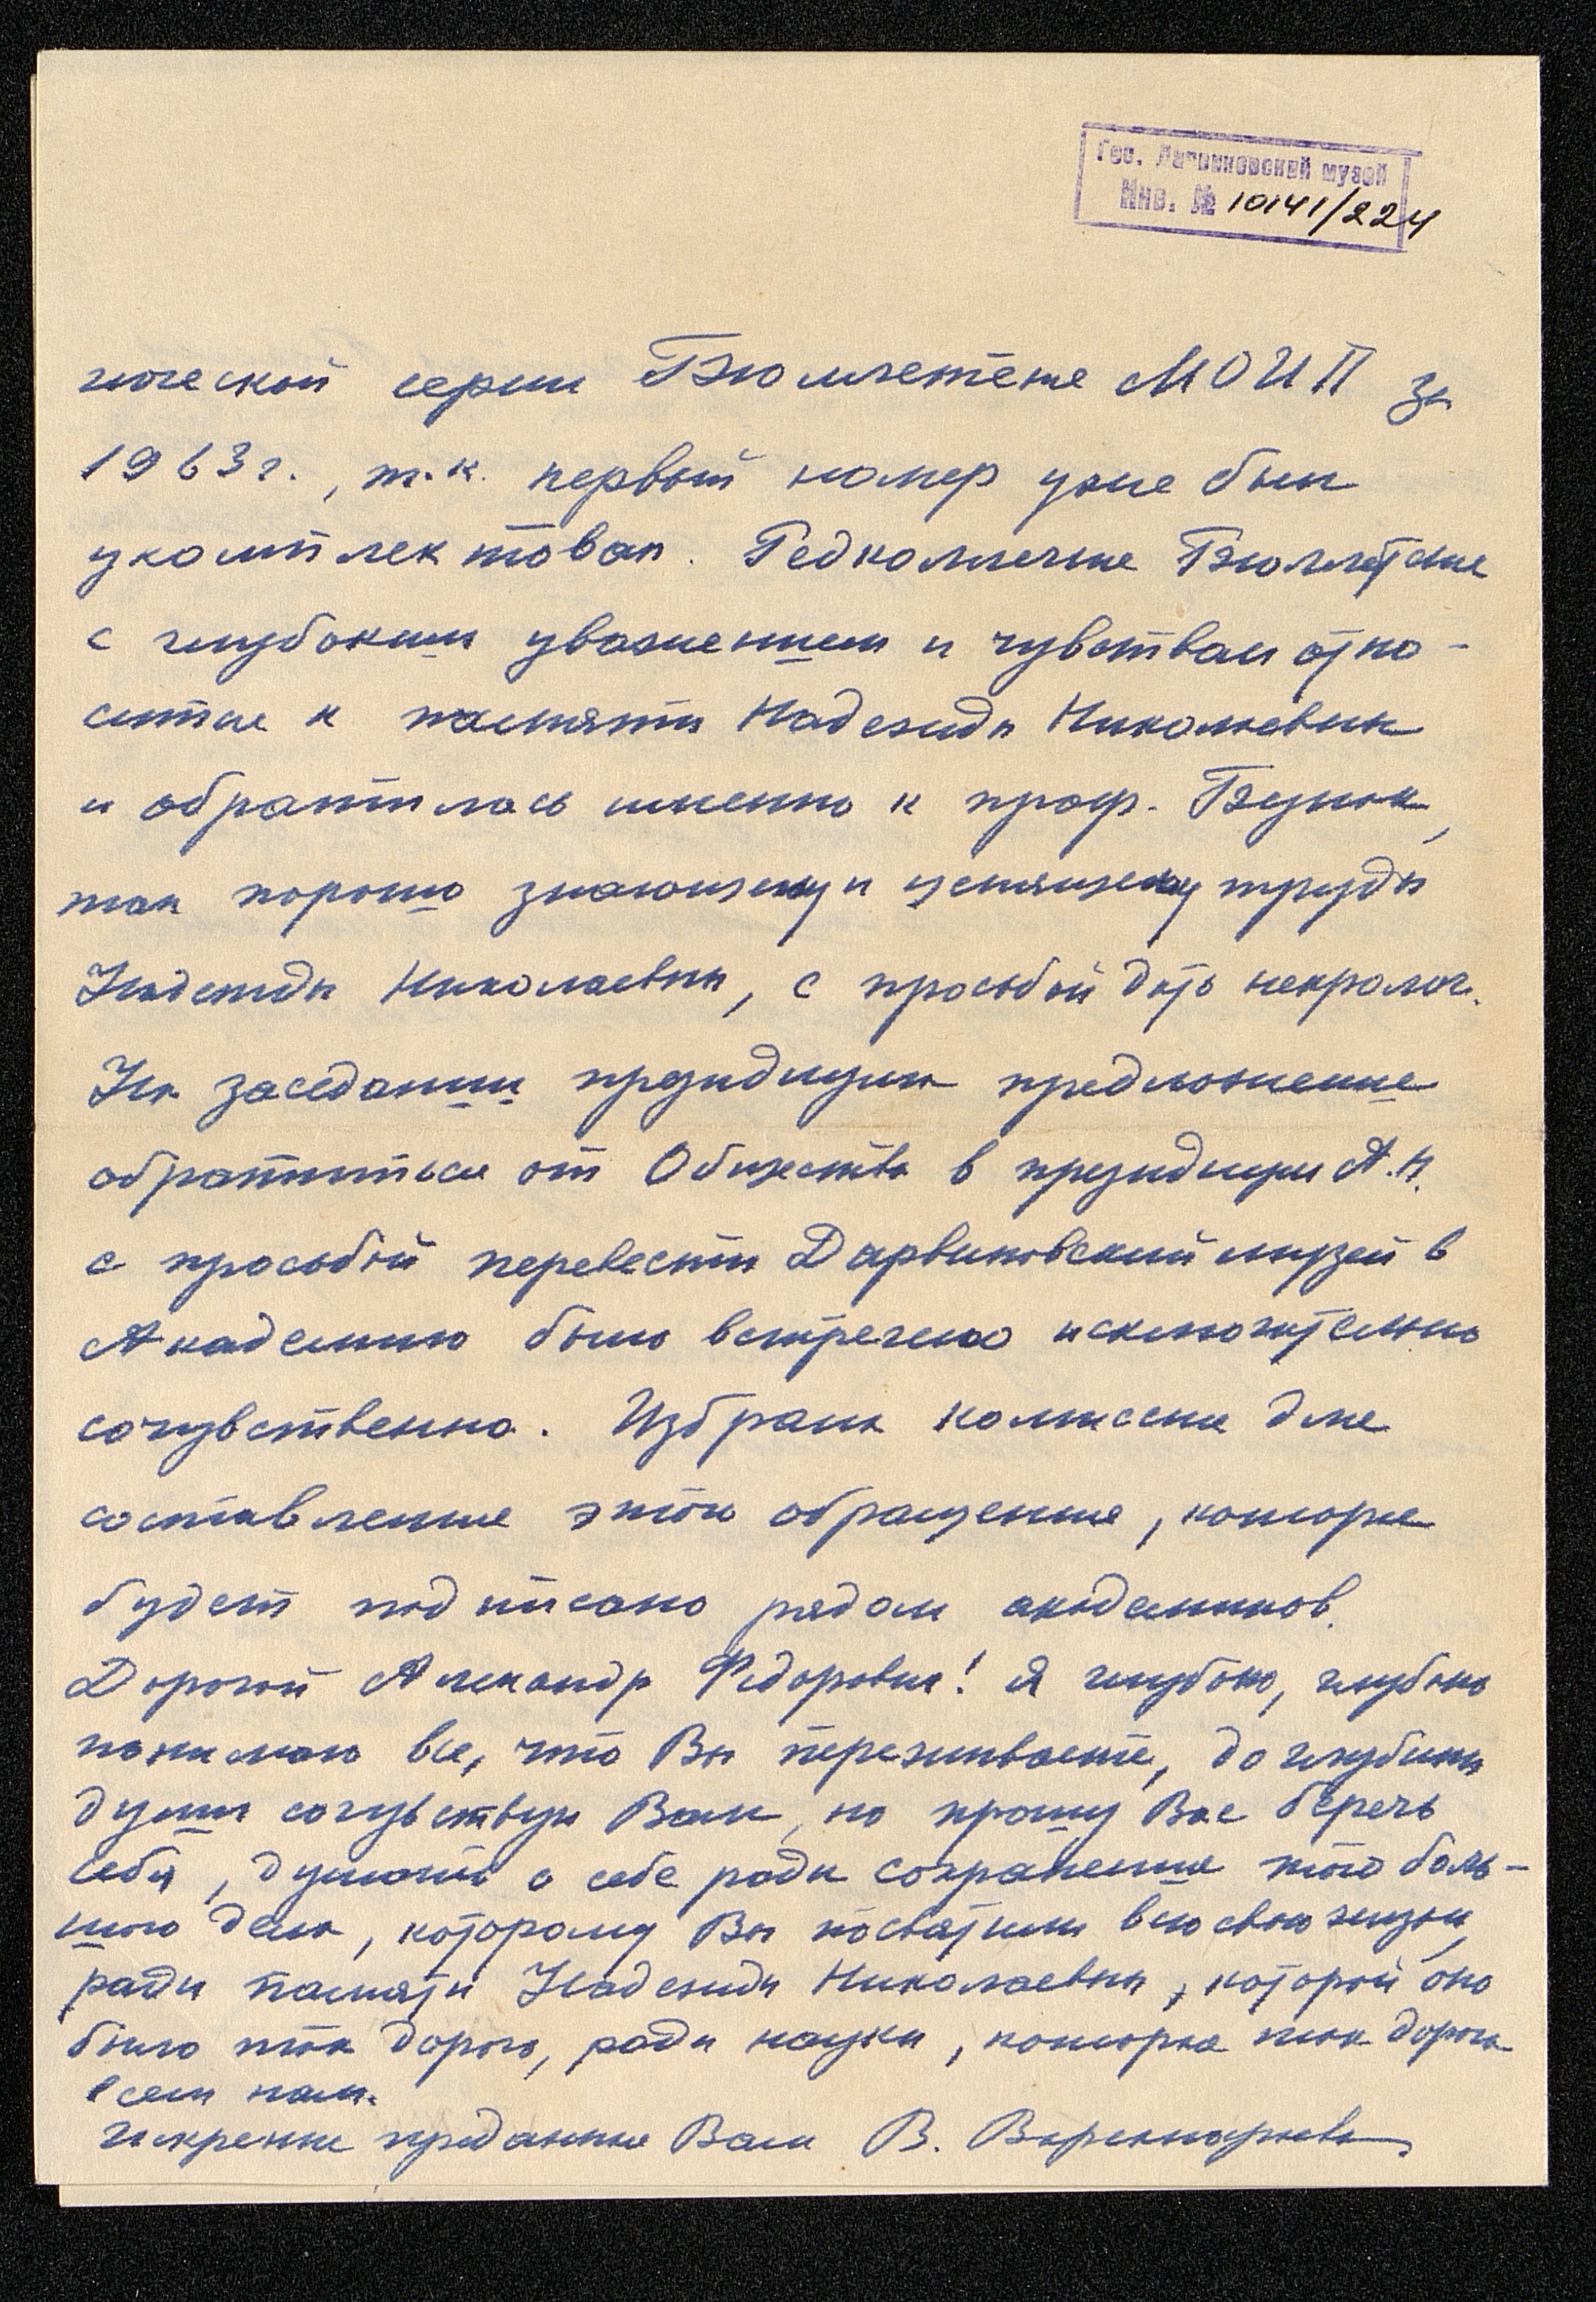 Гос. Дарвиновский музей
Инв. № 10141/224
гической серии Бюллетеня МОИП за
1963 г., т.к. первый номер уже был
укомплектован. Редколлегия Бюллетеня
с глубоким уважением и чувствам отно-
сится к памяти Надежды Николаевны
и обратилась именно к проф.
так хорошо знающему и ценящему труды
Надежды Николаевны, с просьбой дать некролог.
На заседании президиума предложение
обратиться от Общества в президиум А.Н.
с просьбой перевести Дарвиновский музей в
Академию было встречено исключительно
сочувственно. Избрана комиссия для
составления этого обращения, которое
будет подписано рядом академиков.
Дорогой Александр Федорович! Я глубоко, глубоко
понимаю все, что Вы переживаете, до глубины
души сочувствую Вам, но прошу Вас беречь
себя, думать о себе ради сохранения того боль-
шого дела, которому Вы посвятили всю свою жизнь,
ради памяти Надежды Николаевны, которой оно
было так дорого, ради науки, которая так дорога
всем нам.
Искренне преданная Вам В. Варсанофьева